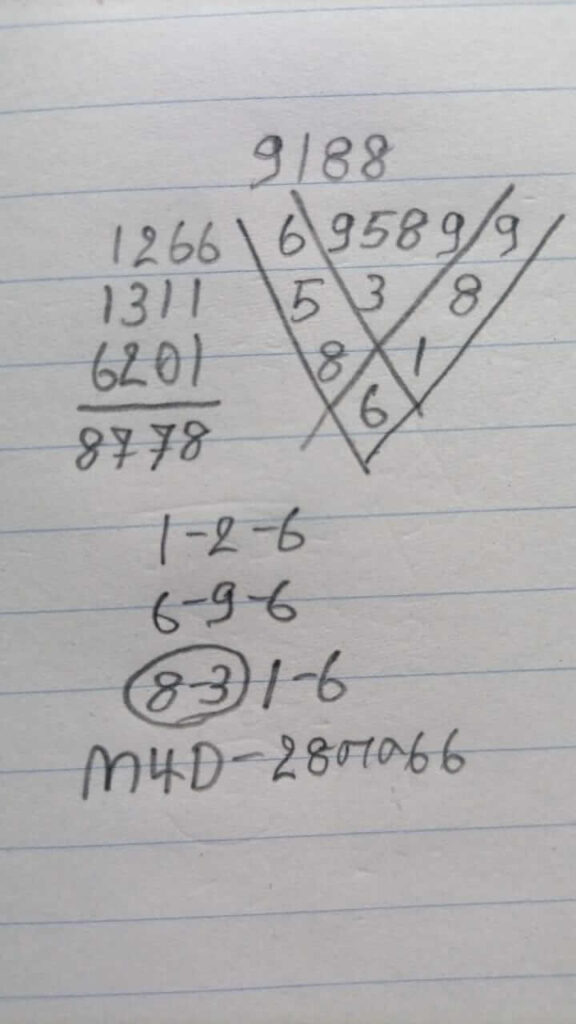 9188
1266 6 9589 9
1311 5 3 8
6201 8 1
8778 6
1-2-6
6-9-6
8-3 1-6
M4D-28
66